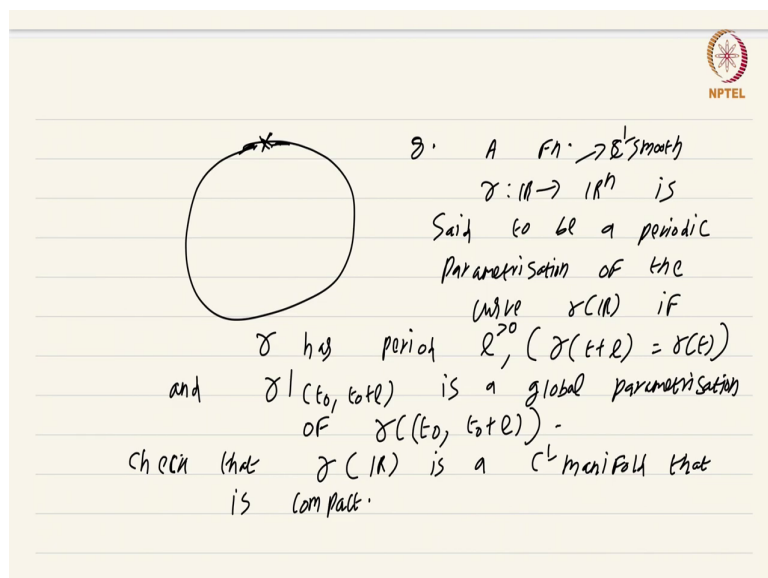 NPTEL
8. A Fn. → C¹ smooth
γ : ℝ → ℝⁿ is
Said to be a periodic
Parametrisation of the
curve γ(ℝ) if
γ has period ℓ>0, (γ(t+ℓ) = γ(t))
and γ|(t₀, t₀+ℓ) is a global parametrisation
of γ((t₀, t₀+ℓ)).
Check that γ(ℝ) is a C¹ manifold that
is compact.